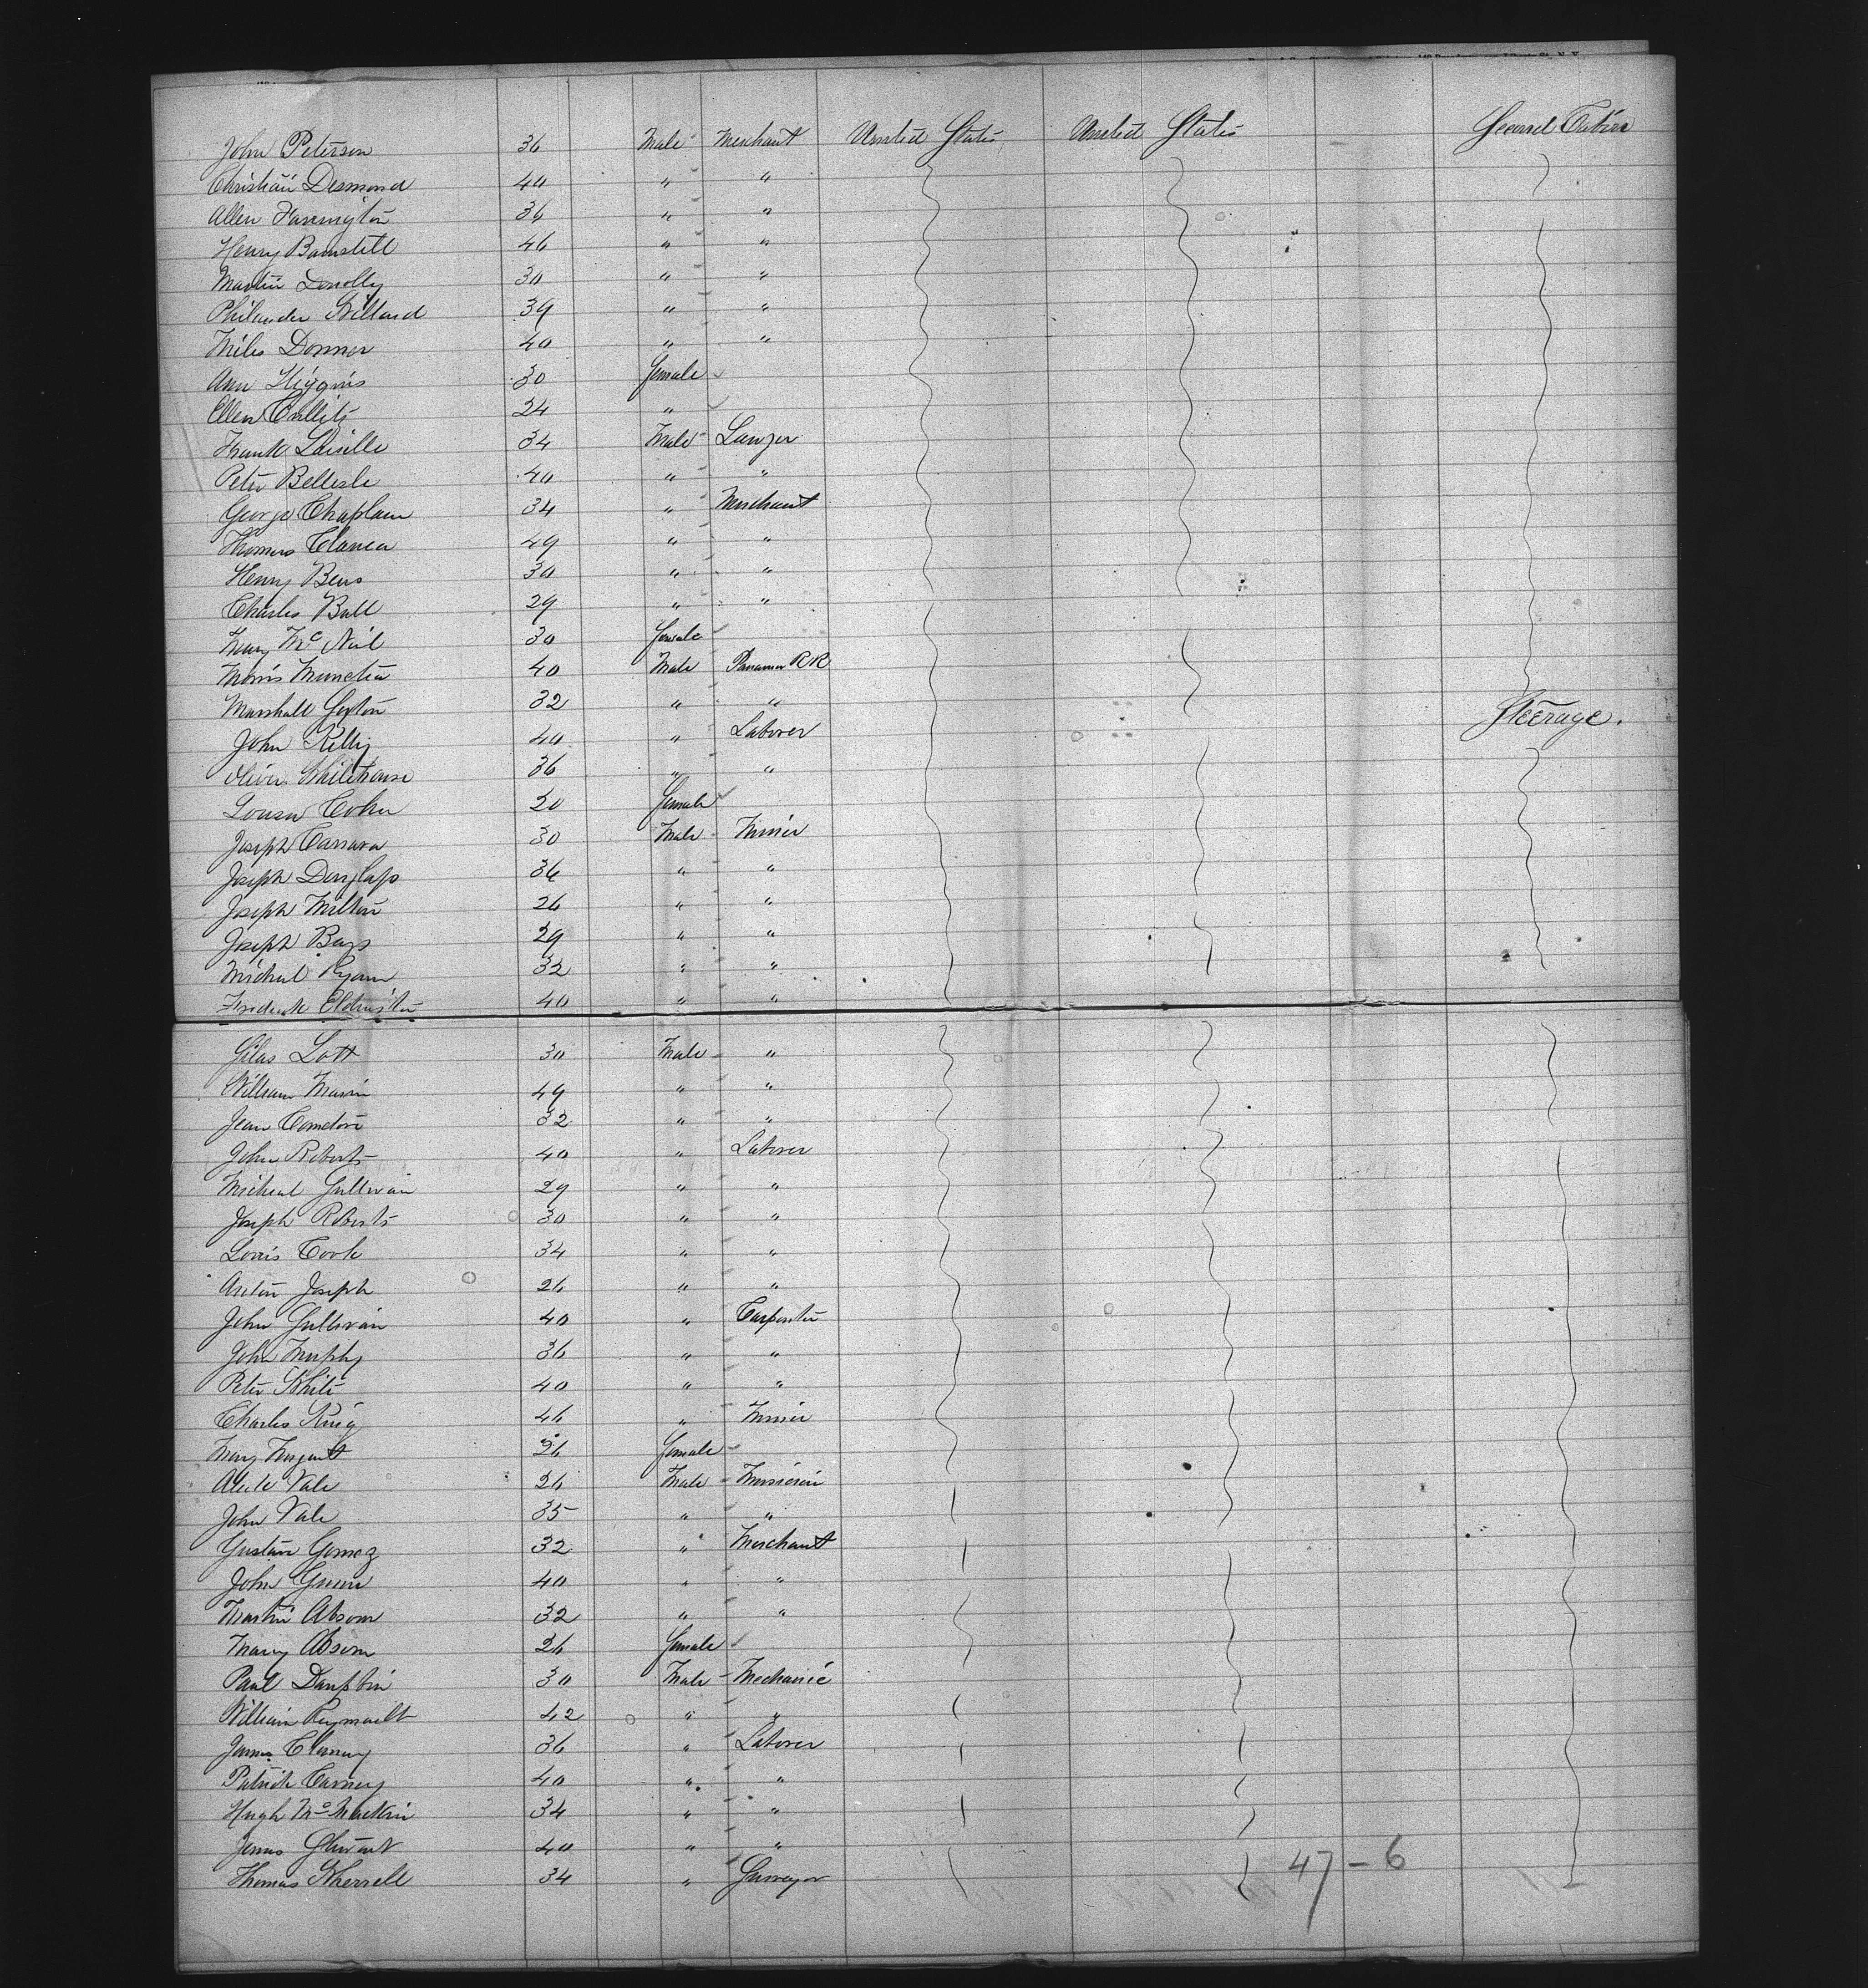 John Peterson 36 Male Merchant United States United States Second Cabin
Christian Desmond 40 " "
Allen Farrington 36 " "
Henry 46 " "
Martin Donolly 30 " "
Philander Willard 39 " "
Miles Donner 40 " "
Ann Higgins 30 Female
Ellen 24 "
Frank Loiselle 34 Male Lawyer
Peter Bellisle 40 " "
George Chaplain 34 " Merchant
Thomas 49 " "
Henry 30 " "
Charles Ball 29 " "
Mary McNeil 30 Female
Morris 40 Male Panama RR
Marshall 32 " "
John Kelly 40 " Laborer Steerage.
Oliver Whitehouse 36 " "
Louisa Cohn 20 Female
Joseph Carrara 30 Male Miner
Joseph Douglass 36 " "
Joseph Milton 26 " "
Joseph Bays 29 " "
Micheal Ryan 32 " "
Fredrick 40 " "
Silas Lott 30 Male "
William Marin 49 " "
Jean 32 " "
John Roberts 40 " Laborer
Micheal Sullivan 29 " "
Joseph Roberts 30 " "
Louis Cook 34 " "
Anton Joseph 26 " "
John Sullivan 40 " Carpenter
John Murphy 36 " "
Peter White 40 " "
Charles King 46 " Miner
Mary 26 Female
Vale 26 Male Musician
John Vale 35 " "
Gustav Gomez 32 " Merchant
John Green 40 " "
Martin Absom 32 " "
Mary Absom 26 Female
Paul Dauphin 30 Male Mechanic
William 42 " "
James Clancy 36 " Laborer
Patrick Carney 40 " "
Hugh Mc 34 " "
James Stewart 40 " "
Thomas Wherrell 34 " Surveyor
47 - 6